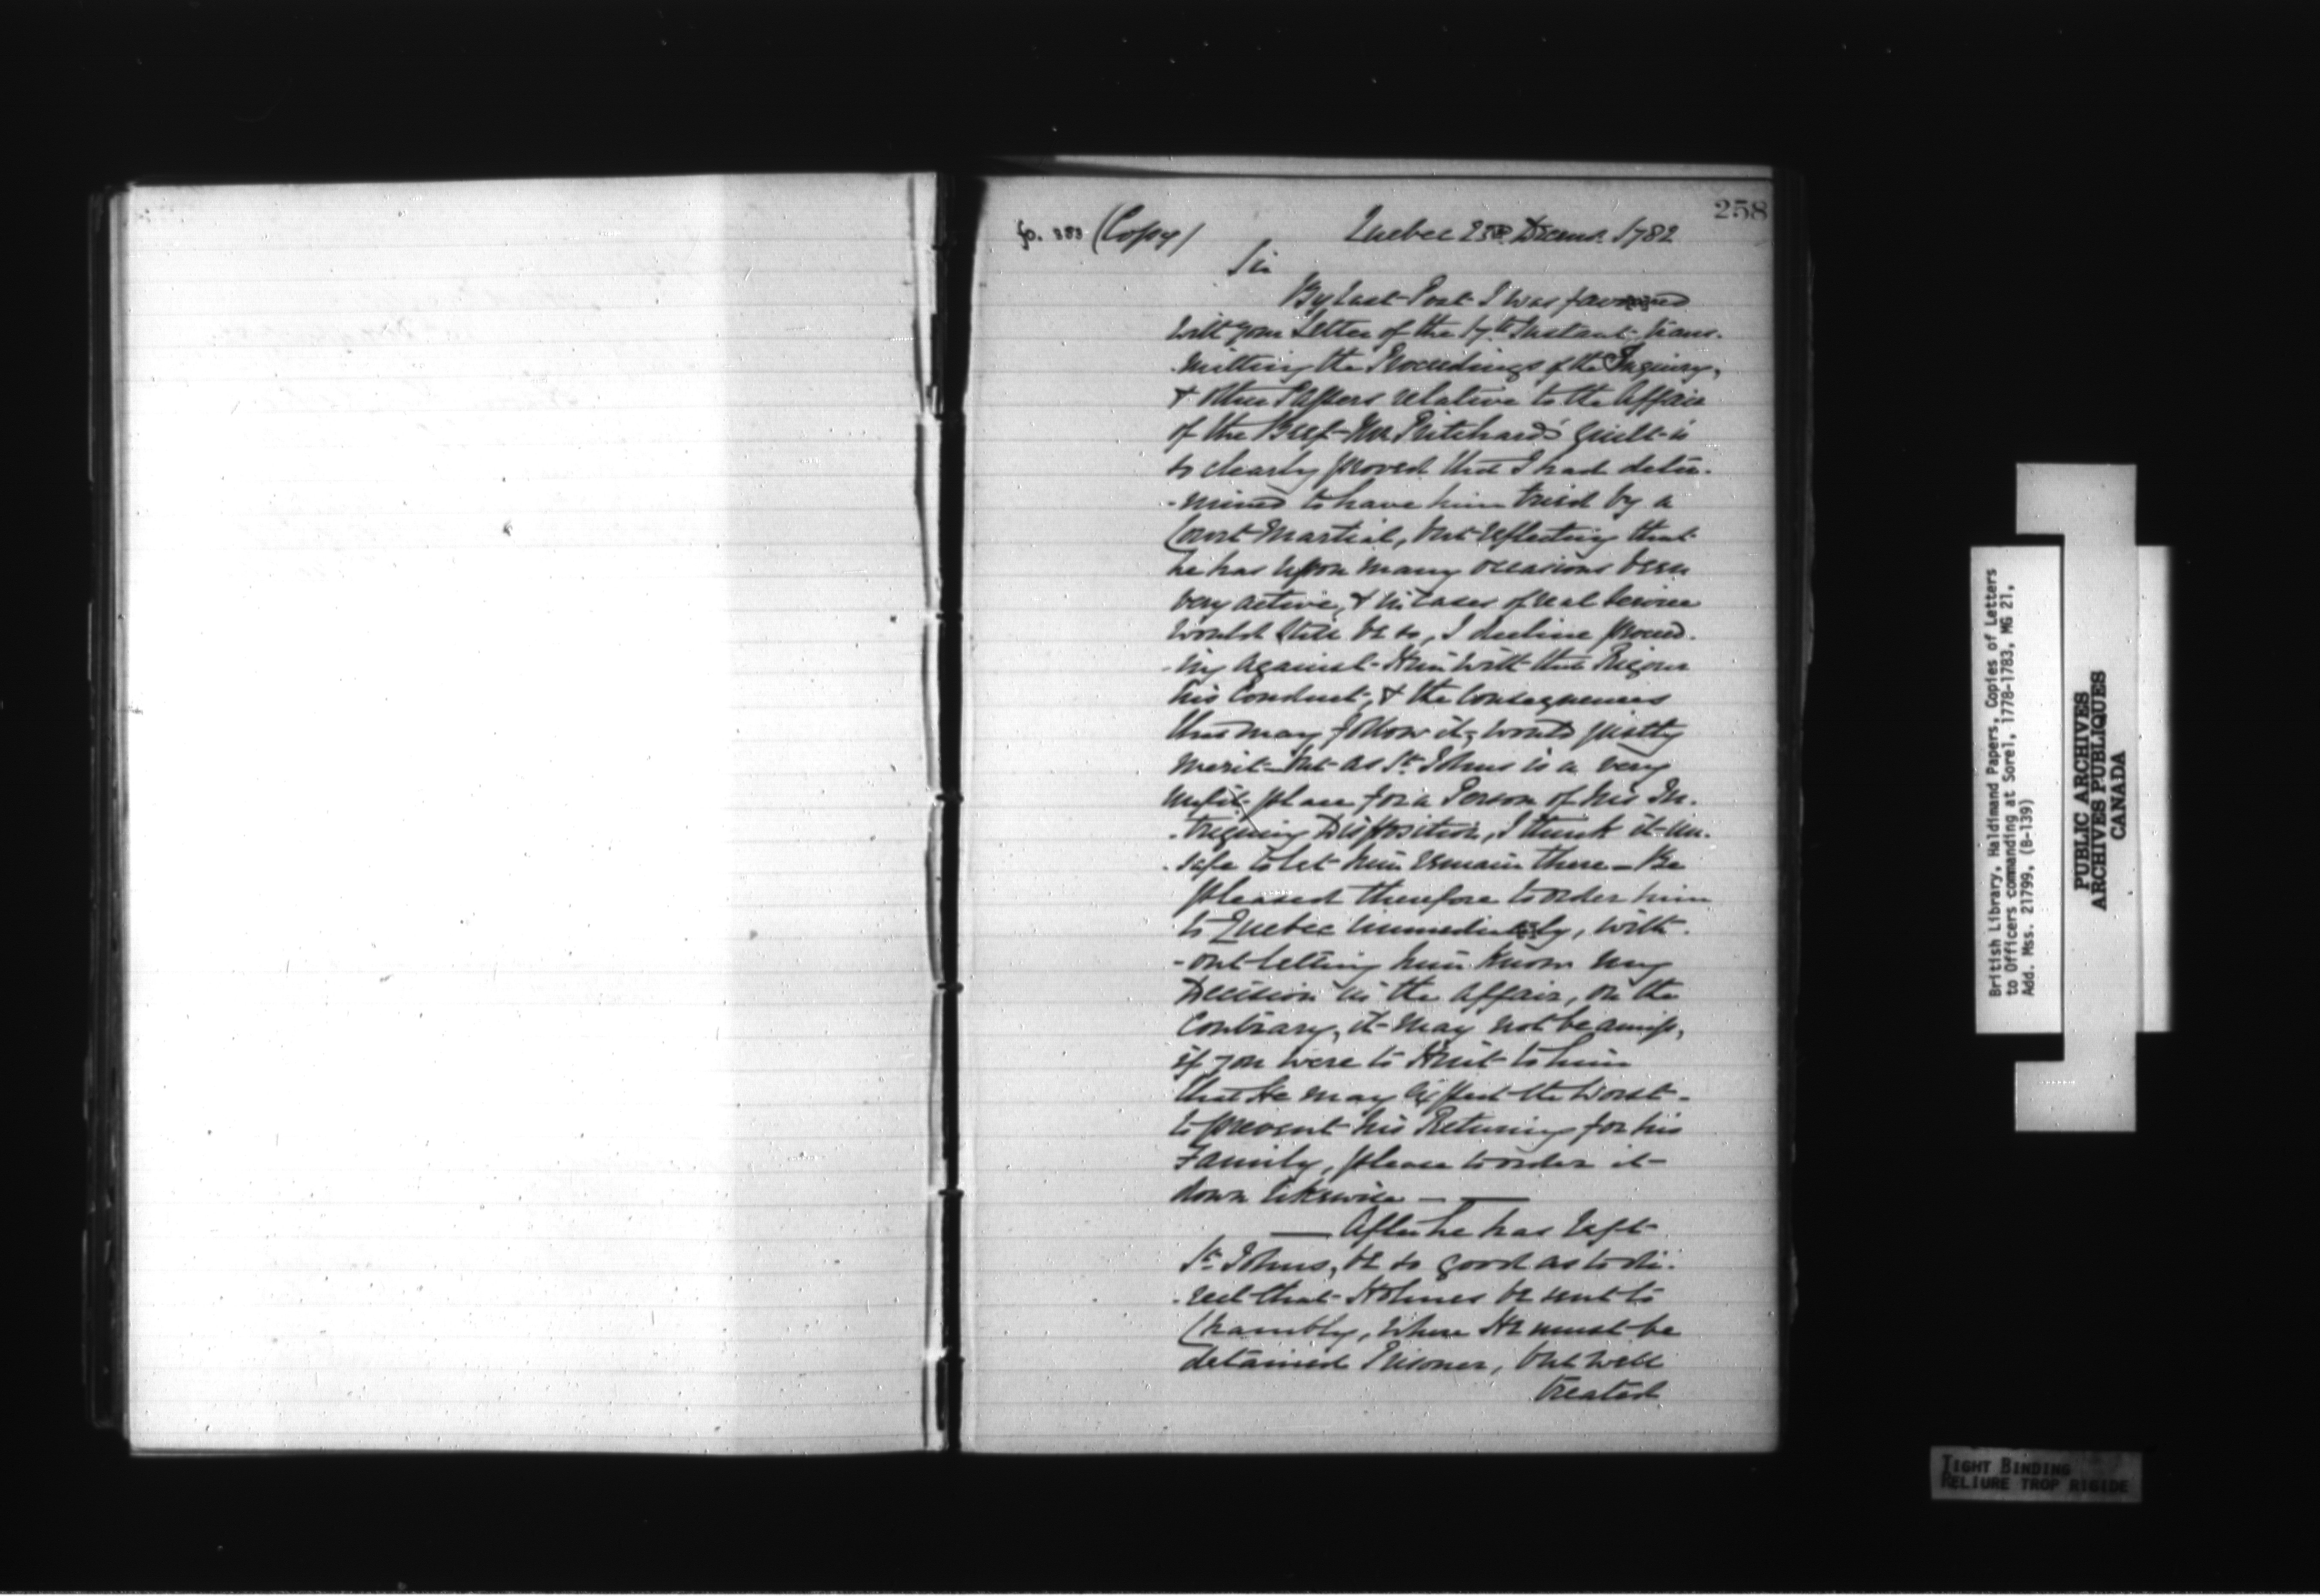 258
fo. 383 (Copy) Quebec 23d Decemr. 1782
Sir
By Last Post I was favoured
with your Letter of the 17th Instant trans-
-mitting the Proceedings of the Inquiry,
& other Papers relative to the Affair
of the Beef - Mr Pritchard's guilt is
so clearly proved that I had deter-
-mined to have him tried by a
Court Martial, but reflecting that
he has upon many occasions been
very active, & in Cases of real Service
would still be so, I decline proceed-
-ing against Him with that Rigour
his Conduct, & the Consequences
that may follow it, would justly
merit - But as St. Johns is a very
unfit place for a Person of his In-
-triguing Disposition, I think it un-
-safe to let him remain there - Be
pleased therefore to order him
to Quebec immediately, with-
-out letting him know my
Decision in the affair, on the
Contrary, it may not be amiss,
if you were to Hint to him
that He may Expect the Worst -
to prevent his Returning for his
Family, please to order it
down likewise -
After he has left
St. Johns, be so good as to di-
-rect that Holmes be sent to
Chambly, where He must be
detained Prisoner, but well
treated
British Library, Haldimand Papers, Copies of Letters
to Officers commanding at Sorel, 1778-1783, MG 21,
Add. Mss. 21799, (B-139)
PUBLIC ARCHIVES
ARCHIVES PUBLIQUES
CANADA
TIGHT BINDING
RELIURE TROP RIGIDE